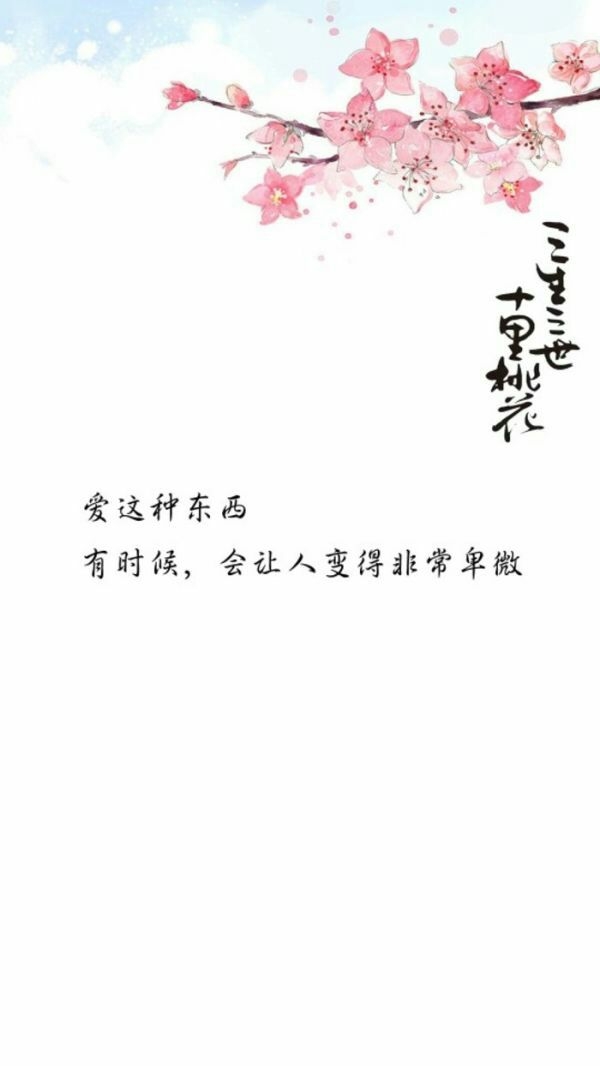 三生三世
十里桃花
爱这种东西
有时候，会让人变得非常卑微